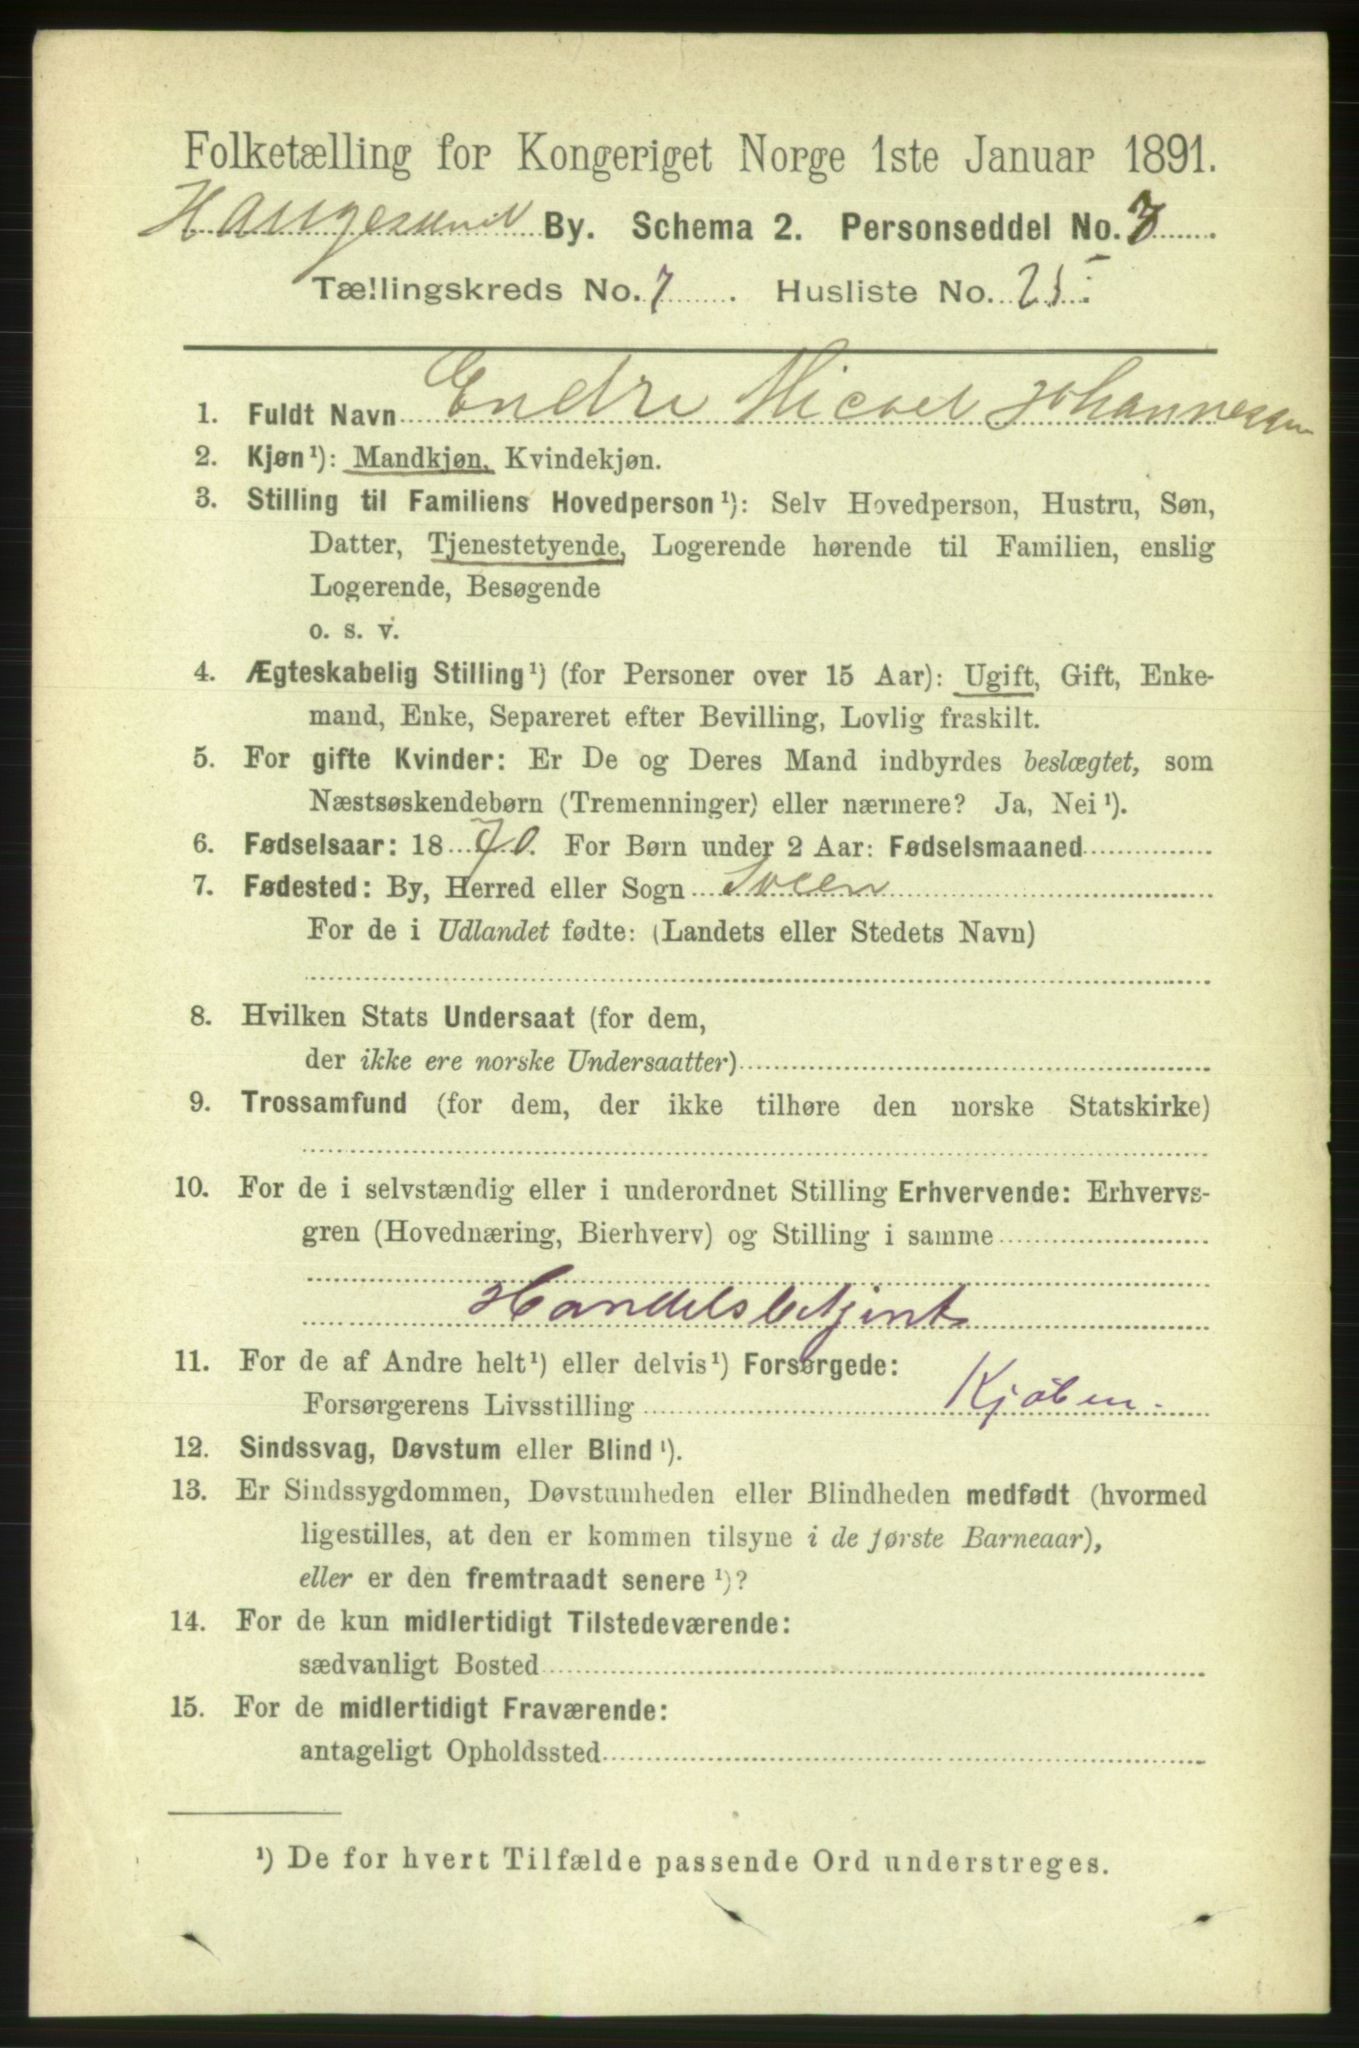 Folketælling for Kongeriget Norge 1ste Januar 1891.
Haugesund By. Schema 2. Personseddel No. 3
Tællingskreds No. 7. Husliste No. 25.
1. Fuldt Navn Endre Micael Johannessen
2. Kjøn¹): Mandkjøn, Kvindekjøn.
3. Stilling til Familiens Hovedperson¹): Selv Hovedperson, Hustru, Søn,
Datter, Tjenestetyende, Logerende hørende til Familien, enslig
Logerende, Besøgende
o. s. v.
4. Ægteskabelig Stilling¹) (for Personer over 15 Aar): Ugift, Gift, Enke-
mand, Enke, Separeret efter Bevilling, Lovlig fraskilt.
5. For gifte Kvinder: Er De og Deres Mand indbyrdes beslægtet, som
Næstsøskendebørn (Tremenninger) eller nærmere? Ja, Nei¹).
6. Fødselsaar: 1870. For Børn under 2 Aar: Fødselsmaaned
7. Fødested: By, Herred eller Sogn Sveen
For de i Udlandet fødte: (Landets eller Stedets Navn)
8. Hvilken Stats Undersaat (for dem,
der ikke ere norske Undersaatter)
9. Trossamfund (for dem, der ikke tilhøre den norske Statskirke)
10. For de i selvstændig eller i underordnet Stilling Erhvervende: Erhvervs-
gren (Hovednæring, Bierhverv) og Stilling i samme
Handelsbetjent
11. For de af Andre helt¹) eller delvis¹) Forsørgede:
Forsørgerens Livsstilling Kjøbm.
12. Sindssvag, Døvstum eller Blind¹).
13. Er Sindssygdommen, Døvstumheden eller Blindheden medfødt (hvormed
ligestilles, at den er kommen tilsyne i de første Barneaar),
eller er den fremtraadt senere¹)?
14. For de kun midlertidigt Tilstedeværende:
sædvanligt Bosted
15. For de midlertidigt Fraværende:
antageligt Opholdssted
¹) De for hvert Tilfælde passende Ord understreges.